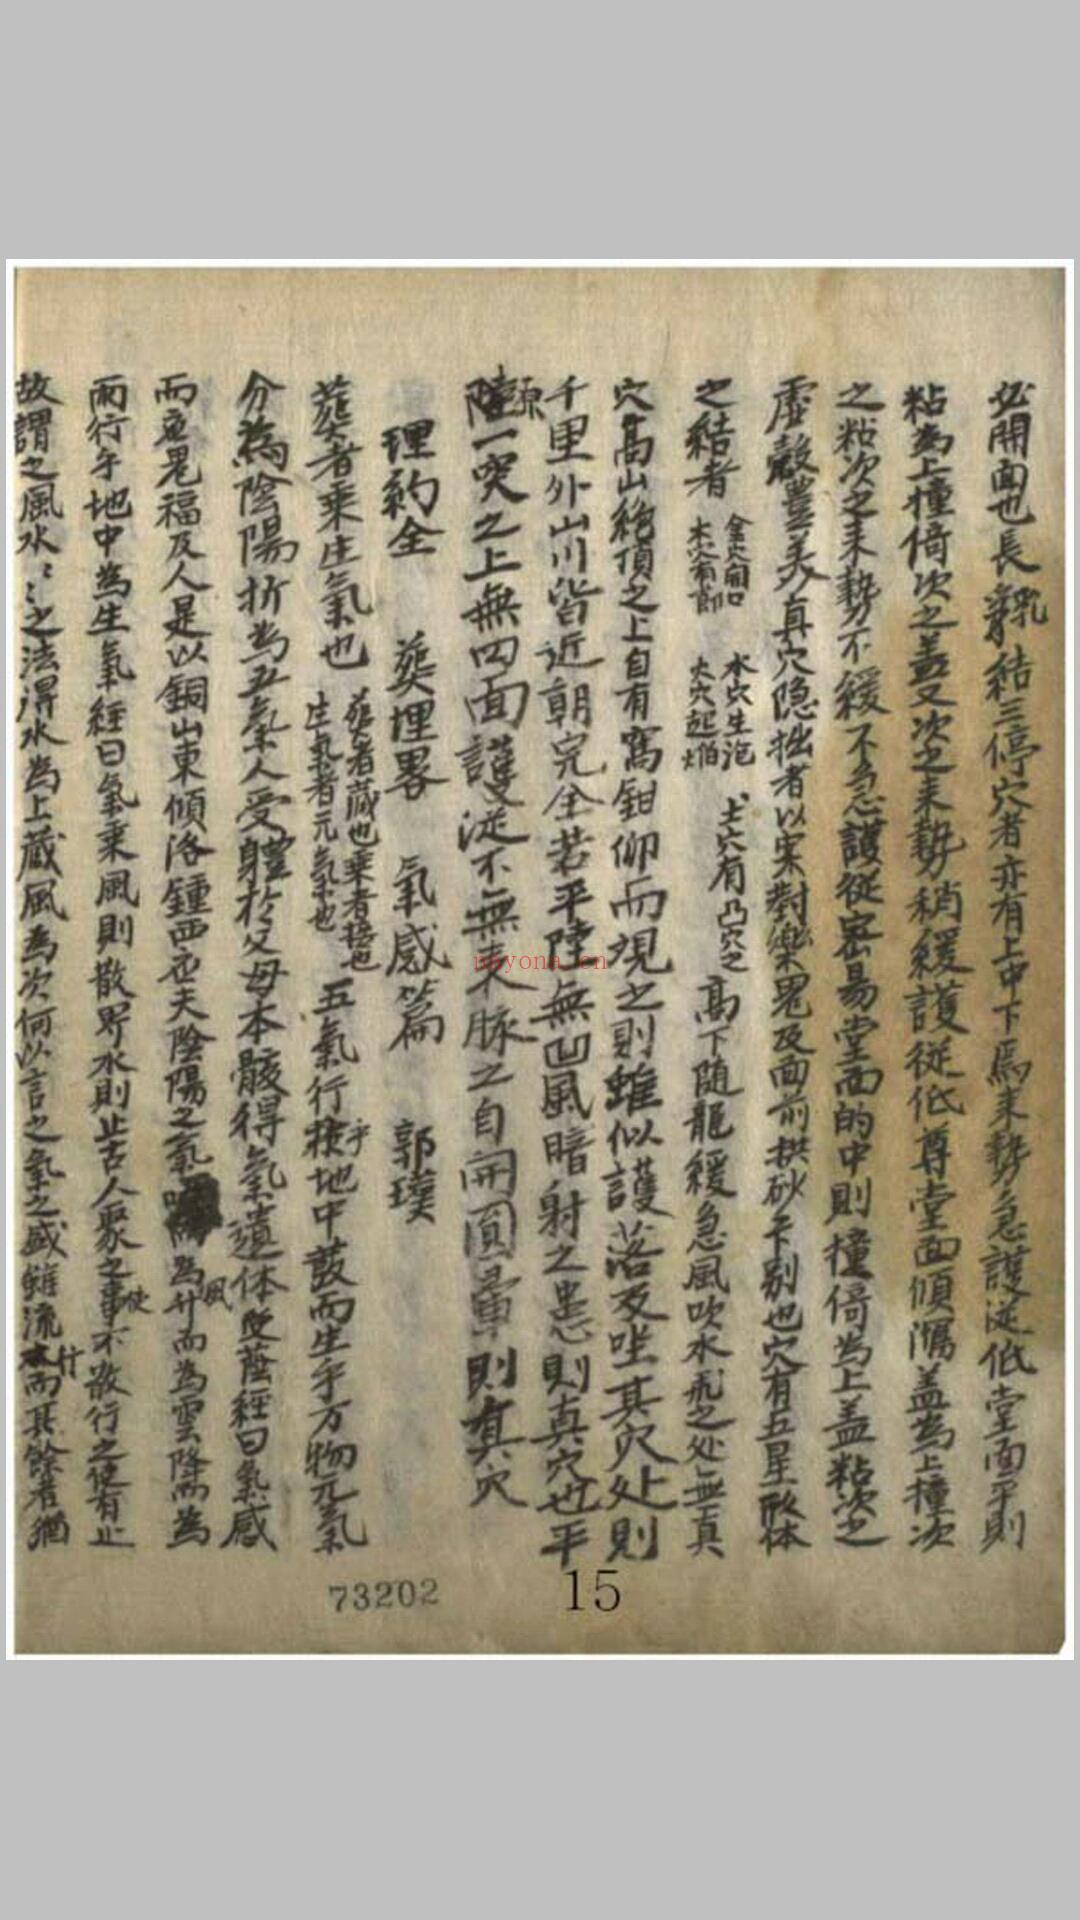 必開面也長乳結三停穴者亦有上中下焉来勢急護從低堂面平則
粘為上撞倚次之盖又次之来勢稍緩護從低尊堂面傾瀉盖為上撞次
之粘次之来勢不緩不急護從密昜堂面的中則撞倚為上盖粘次之
虚殼豊美真穴隐拙者以案對樂鬼及面前拱砂下别也穴有五星形体
之結者 金穴開口 木穴有節 水穴生泡 火穴起焰 土穴有凸穴之 高下随龍緩急風吹水飛之处無真
穴高山絶頂之上自有窩鉗仰而視之則雖似護落及坐其穴处則
千里外山川皆近朝完全若平陸無凹風暗射之患則真穴也平
原一突之上無四面護從不無来脉之自開圓暈則真穴
理約全 葬埋畧 氣感篇 郭璞
葬者乗生氣也 葬者藏也乗者接也 生氣者元氣也 五氣行乎地中蔎而生乎万物元氣
分為陰陽折為五氣人受體於父母本骸得氣遺体受蔭經曰氣感
而應鬼福及人是以銅山東傾洛鍾西应夫陰陽之氣 為風升而為雲降而為
雨行乎地中為生氣經曰氣乗風則散界水則止古人聚之使不散行之使有止
故謂之風水〻〻之法得水為上蔵風為次何以言之氣之盛雖流行而其餘者猶
73202
15
nbyona.cn